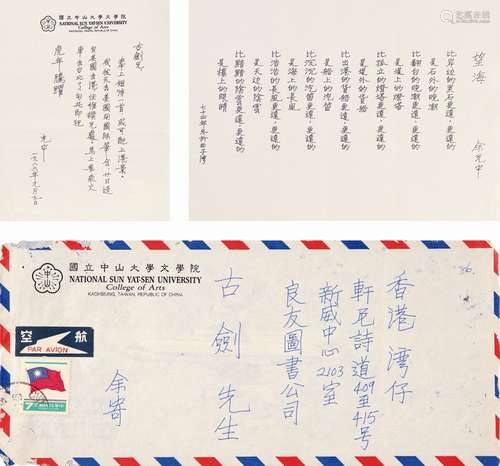 國立中山大學文學院
NATIONAL SUN YAT-SEN UNIVERSITY
College of Arts
KAOHSIUNG, TAIWAN, REPUBLIC OF CHINA
古劍兄
奉上短詩一首,或可配上港景。
我後天去美國開國際筆會,廿日返
虎年騰躍
光中
望海
余光中
比岸邊的黑石更遠,更遠的
是石外的晚潮
比翻白的晚潮更遠,更遠的
是堤上的燈塔
比孤立的燈塔更遠,更遠的
是堤外的貨船
比出港的貨船更遠,更遠的
是船上的汽笛
比沉沉的汽笛更遠,更遠的
是海上的長風
比浩浩的長風更遠,更遠的
是天邊的陰雲
比黯黯的陰雲更遠,更遠的
是樓上的眼睛
七十四年冬於西子灣
國立中山大學文學院
NATIONAL SUN YAT-SEN UNIVERSITY
College of Arts
KAOHSIUNG, TAIWAN, REPUBLIC OF CHINA
航空
PAR AVION
香港灣仔
軒尼詩道409至415号
新威中心2103室
良友圖書公司
古劍先生
余寄